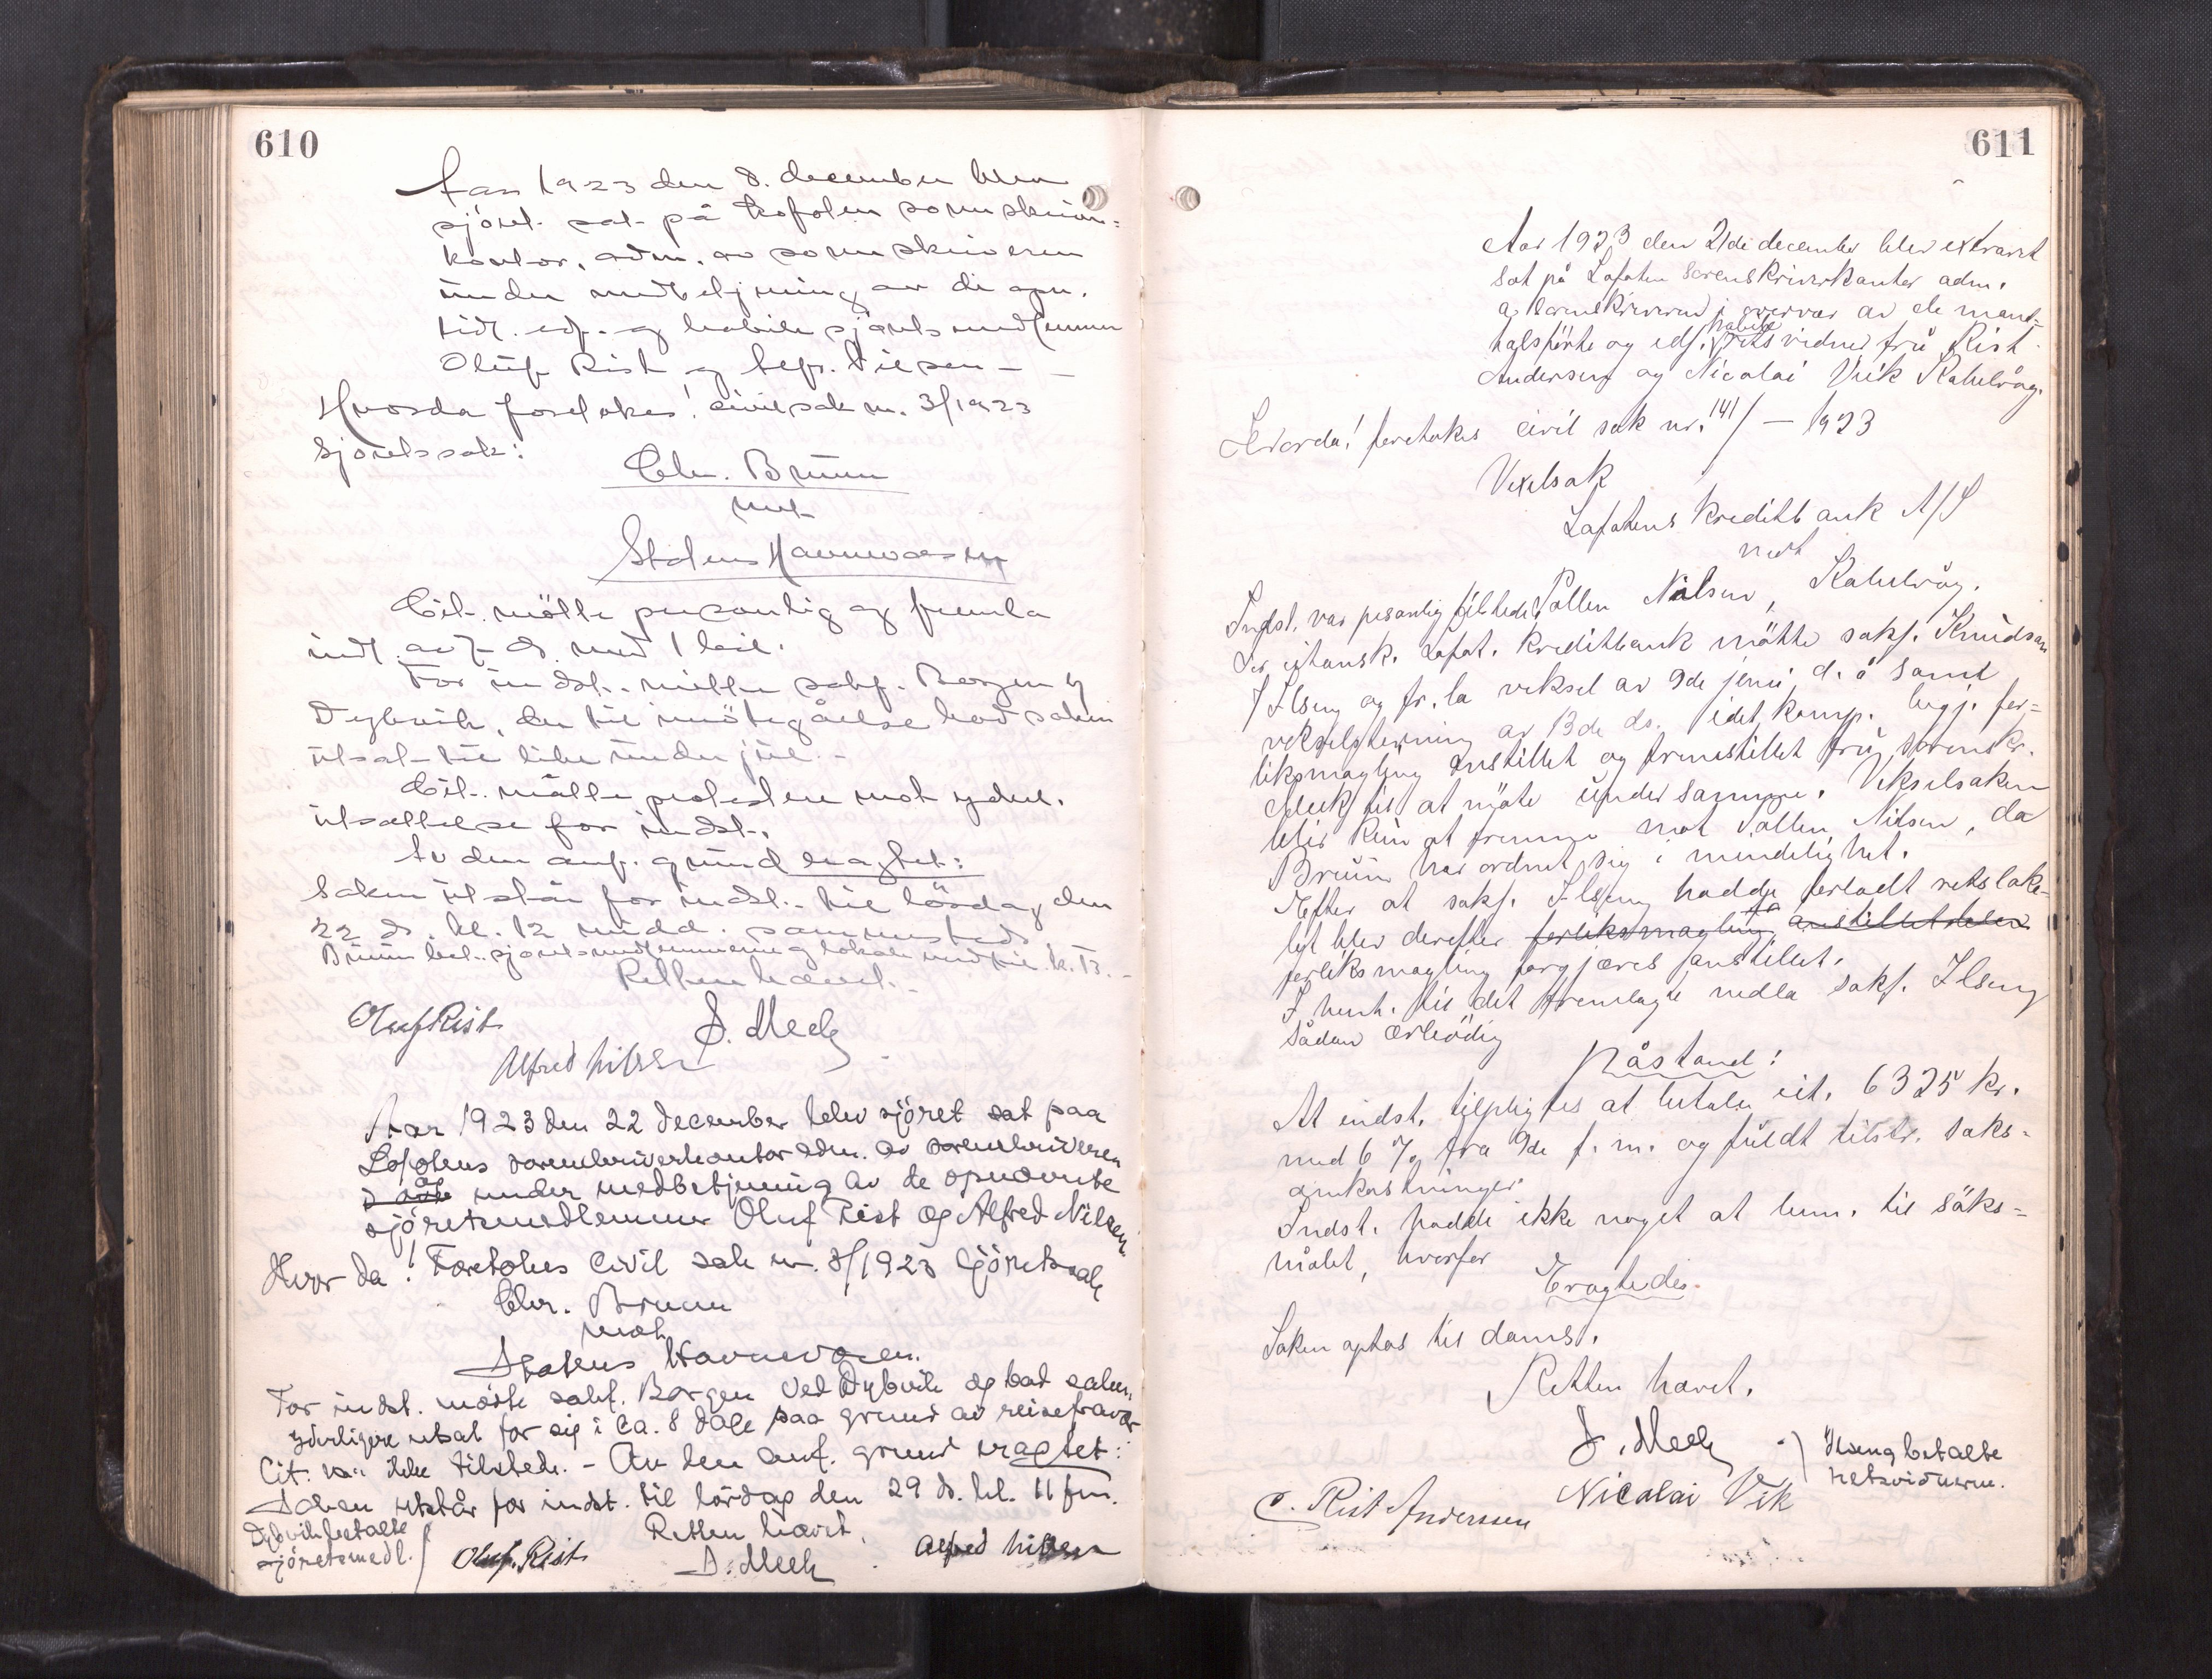 610
Aar 1923 den 8. december blev
sjöret sat på Lofoten sorenskriver=
kontor, adm. av sorenskriveren
under medbetjening av de opn.
tidl. edf. og habile sjörets medlemmer
Oluf Rist og Alfr. Nilsen –
Hvorda foretokes! civil sak nr. 3/1923
Sjöretssak:
Chr. Bruun
mot
Statens Havnevæsen
Cit. mötte personlig og fremla
indl. av 7 ds. med 1 bil.
For indst. mötte sakf. Borgen v
Dybvik, der til imötegåelse bad saken
utsat til like under jul. –
Cit. måtte protestere mot yderl.
utsættelse for indst.
Av den anf. grund eragtet:
Saken utstår for indst. til lördag den
22 ds. kl. 12 midd. sammesteds
Bruun bet. sjöretsmedlemmerne og lokale med til. k. 13. –
Retten hævet. –
Oluf Rist
J. Meek
Alfred Nilsen
Aar 1923 den 22 december blev sjöret sat paa
Lofotens sorenskriverkontor adm. av sorenskriveren
og under medbetjening av de opnævnte
sjöretsmedlemmer Oluf Rist og Alfred Nilsen.
Hvor da! Foretokes Civil sak nr. 3/1923 Sjöretssak
Chr. Bruun
mot
Statens Havnevæsen.
For indst. mötte sakf. Borgen ved Dybvik og bad saken
yderligere utsat for sig i ca. 8 dage paa grund av reisefravær
Cit. var ikke tilstede. – Av den anf. grund eragtet:
Saken utstår for indst. til lördag den 29 ds. kl. 11 fm.
Dybvik betalte
sjöretsmedl.
Retten hævet.
Oluf. Rist
J. Meek
Alfred Nilsen
611
Aar 1923 den 21de december blev extraret
sat på Lofoten Sorenskriverkontor adm.
a. sorenskriveren i overvær av de mand=
talsförte og edf. habile retsvidner fru Rist
Andersen og Nicolai Vik Kabelvåg.
Hvorda! foretokes civil sak nr. 141/ – 1923
Vexelsak
Lofotens Kreditbank A/S
mot
Nilsen, Kabelvåg.
Indst. var personlig tilstede
For citansk. Lofot. Kreditbank mötte sakf. Knudsen
/ Ilseng og fr. la veksel av 9de juni d. å samt
vekselstevning av 13de ds. idet komp. begj. for=
liksmægling anstillet og fremstillet fru sorenskr.
Meek til at möte under samme. Vekselsaken
blir kun at fremme mot Nilsen, da
Bruun har ordnet sig i mindelighet.
Efter at sakf. Ilseng hadde forladt retsloka=
let blev derefter forliksmægling anstillet
forliksmægling forgjæves anstillet.
I henh. til det fremlagte nedla sakf. Ilseng
sådan ærbödig
Påstand!
At indst. tilpligtes at betale cit. 6325 kr.
med 6 % fra 9de f. m. og fuldt tilstr. saks=
omkostninger
Indst. hadde ikke noget at bem. til söks=
målet, hvorfor
Eragtedes.
Saken optas til doms.
Retten hævet.
J. Meek
Ilseng betalte
retsvidnerne.
Nicolai Vik
C. Rist Andersen